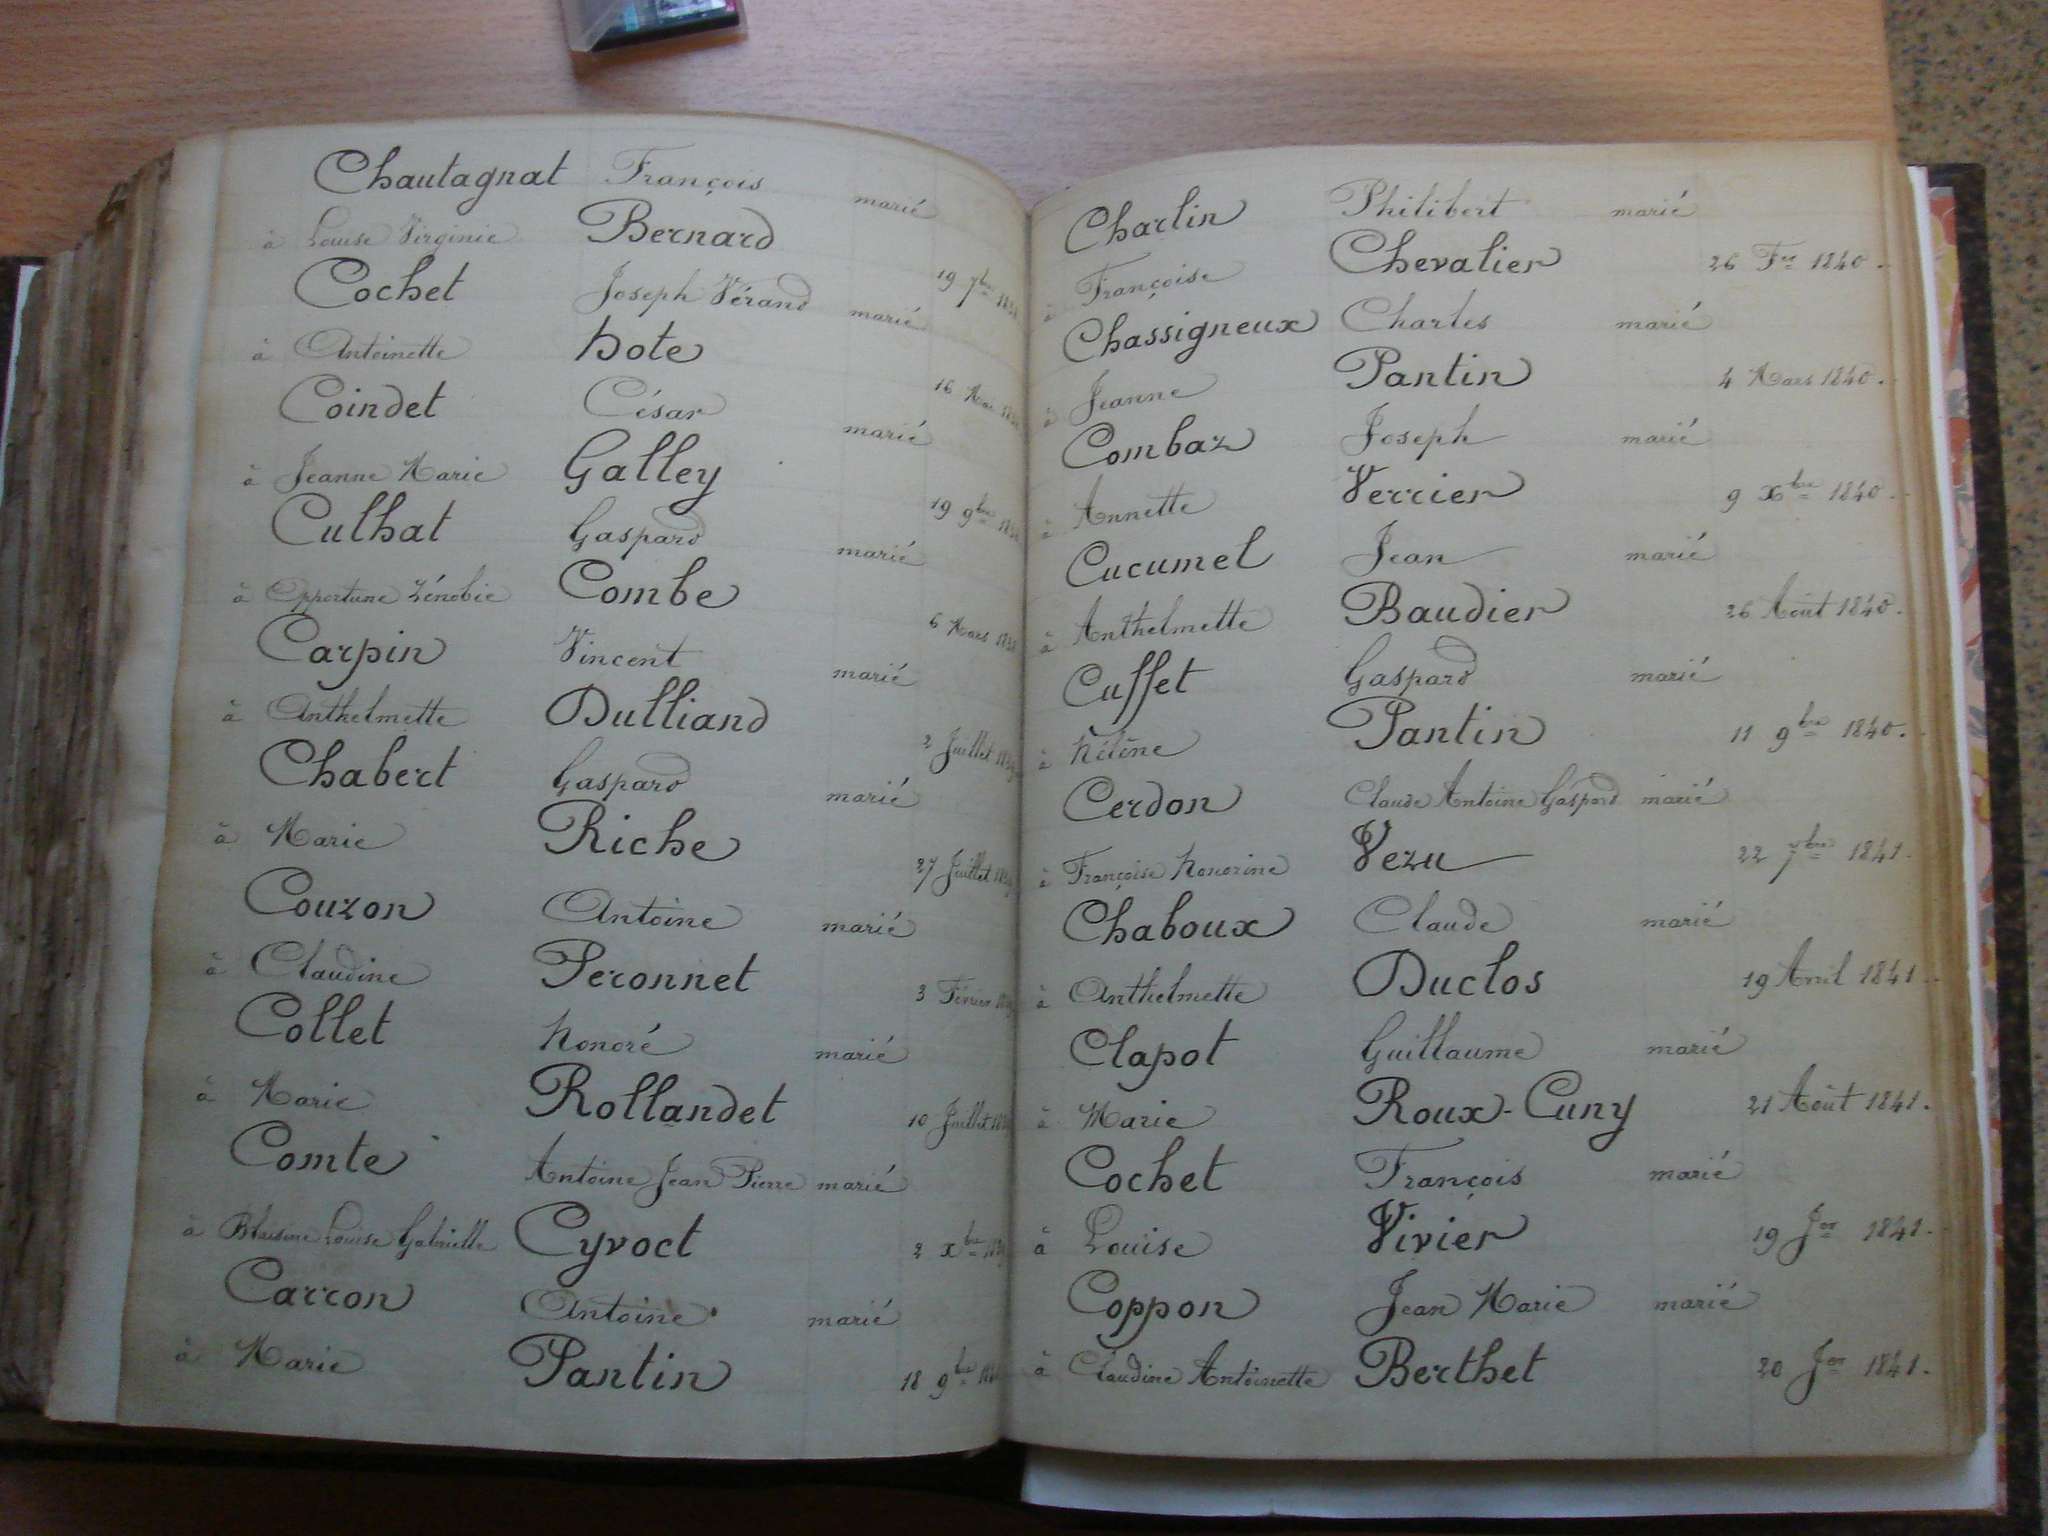 Chautagnat François marié
à Louise Virginie Bernard 19 7bre
Cochet Joseph Vérand marié
à Antoinette hote 16 Mai
Coindet César marié
à Jeanne Marie Galley 19 9bre
Culhat Gaspard marié
à Opportune Zénobie Combe 6 Mars
Carpin Vincent marié
à Anthelmette Dulliand 2 Juillet
Chabert Gaspard marié
à Marie Riche 27 Juillet
Couzon Antoine marié
à Claudine Peronnet 3 Février
Collet honoré marié
à Marie Rollandet 10 Juillet
Comte Antoine Jean Pierre marié
à Blaisine Louise Gabrielle Cyvoct 2 xbre
Carron Antoine marié
à Marie Pantin 18 9bre
Charlin Philibert marié
à Françoise Chevalier 26 Fer 1840.
Chassigneux Charles marié
à Jeanne Pantin 4 Mars 1840.
Combaz Joseph marié
à Annette Verrier 9 xbre 1840.
Cucumel Jean marié
à Anthelmette Baudier 26 Août 1840.
Cuffet Gaspard marié
à hélène Pantin 11 9bre 1840.
Cerdon Claude Antoine Gaspard marié
à Françoise honorine Vezu 22 7bre 1841.
Chaboux Claude marié
à Anthelmette Duclos 19 Avril 1841.
Clapot Guillaume marié
à Marie Roux-Cuny 21 Août 1841.
Cochet François marié
à Louise Vivier 19 Jer 1841.
Coppon Jean Marie marié
à Claudine Antoinette Berthet 20 Jer 1841.